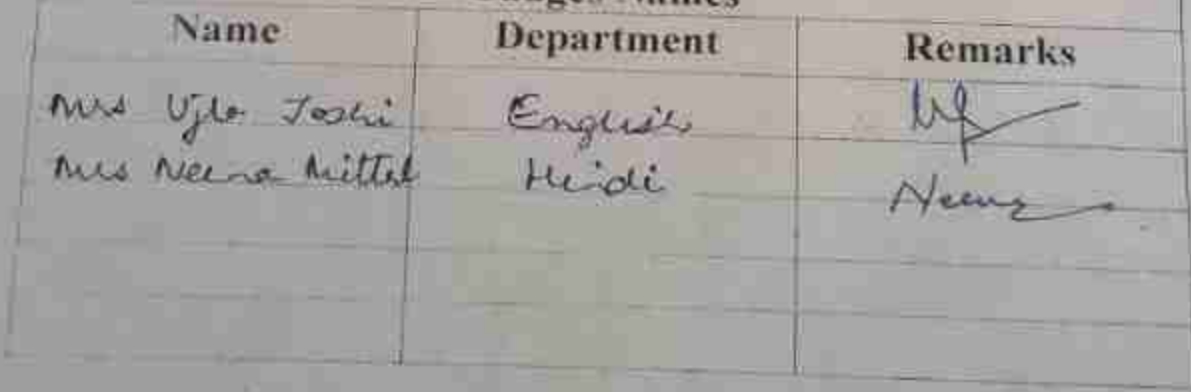 Judges Names
Name Department Remarks
Mrs Ujla Joshi English
Mrs Neena Mittal Hindi Neena